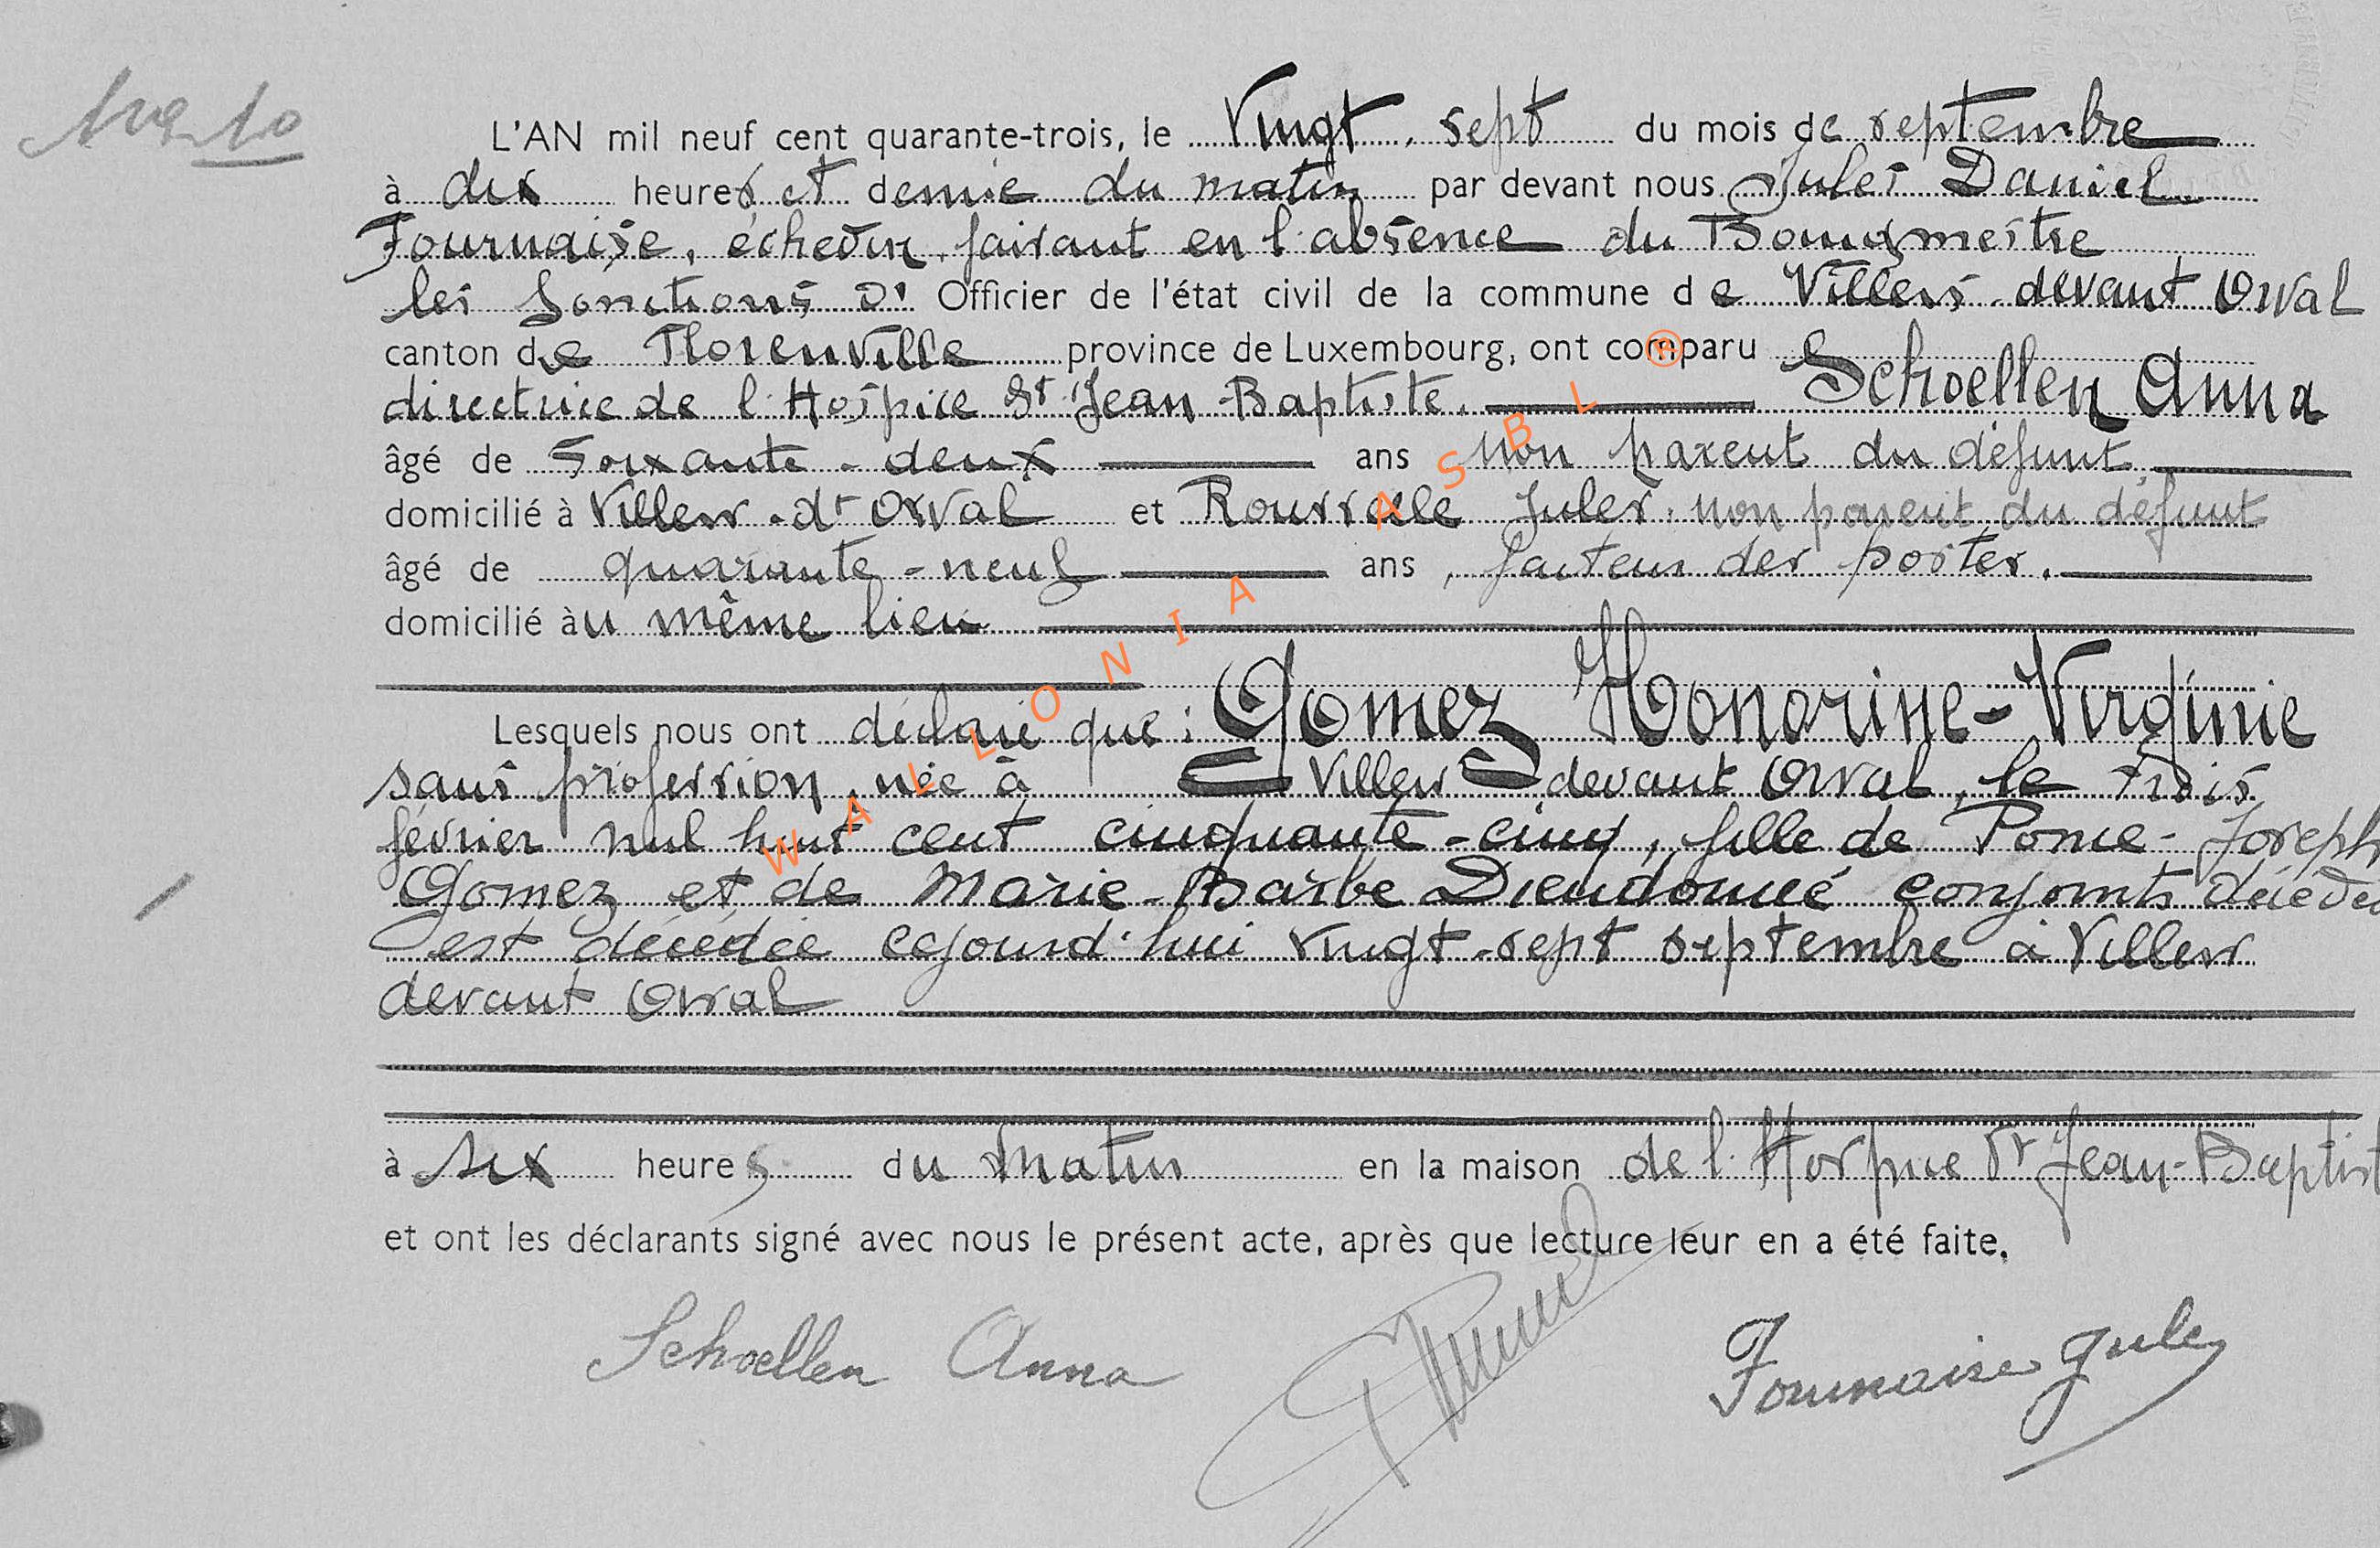 N° 10
L'AN mil neuf cent quarante-trois, le Vingt-sept du mois de septembre
à dix heures et demie du matin par devant nous Jules Daniel
Fournaise, échevin, faisant en l'absence du Bourgmestre
les fonctions d' Officier de l'état civil de la commune de Villers-devant Orval
canton de Florenville province de Luxembourg, ont comparu Schoellen Anna
directrice de l'Hospice St Jean-Baptiste,
âgé de soixante-deux ans non parent du défunt,
domicilié à Villers-dt Orval et Jules, non parent du défunt
âgé de quarante-neuf ans, facteur des postes.
domicilié au même lieu
Lesquels nous ont déclaré que: Gomez Honorine-Virginie
sans profession, née à Villers devant Orval, le trois
février mil huit cent cinquante-cinq, fille de Ponce-Joseph
Gomez et de Marie-Barbe Dieudonné conjoints décédés
est décédée cejourd'hui vingt-sept septembre à Villers
devant Orval
à six heures du matin en la maison de l'Hospice St Jean-Baptist
et ont les déclarants signé avec nous le présent acte, après que lecture leur en a été faite.
Schoellen Anna Fournaise Jules
WALLONIA ASBL ®